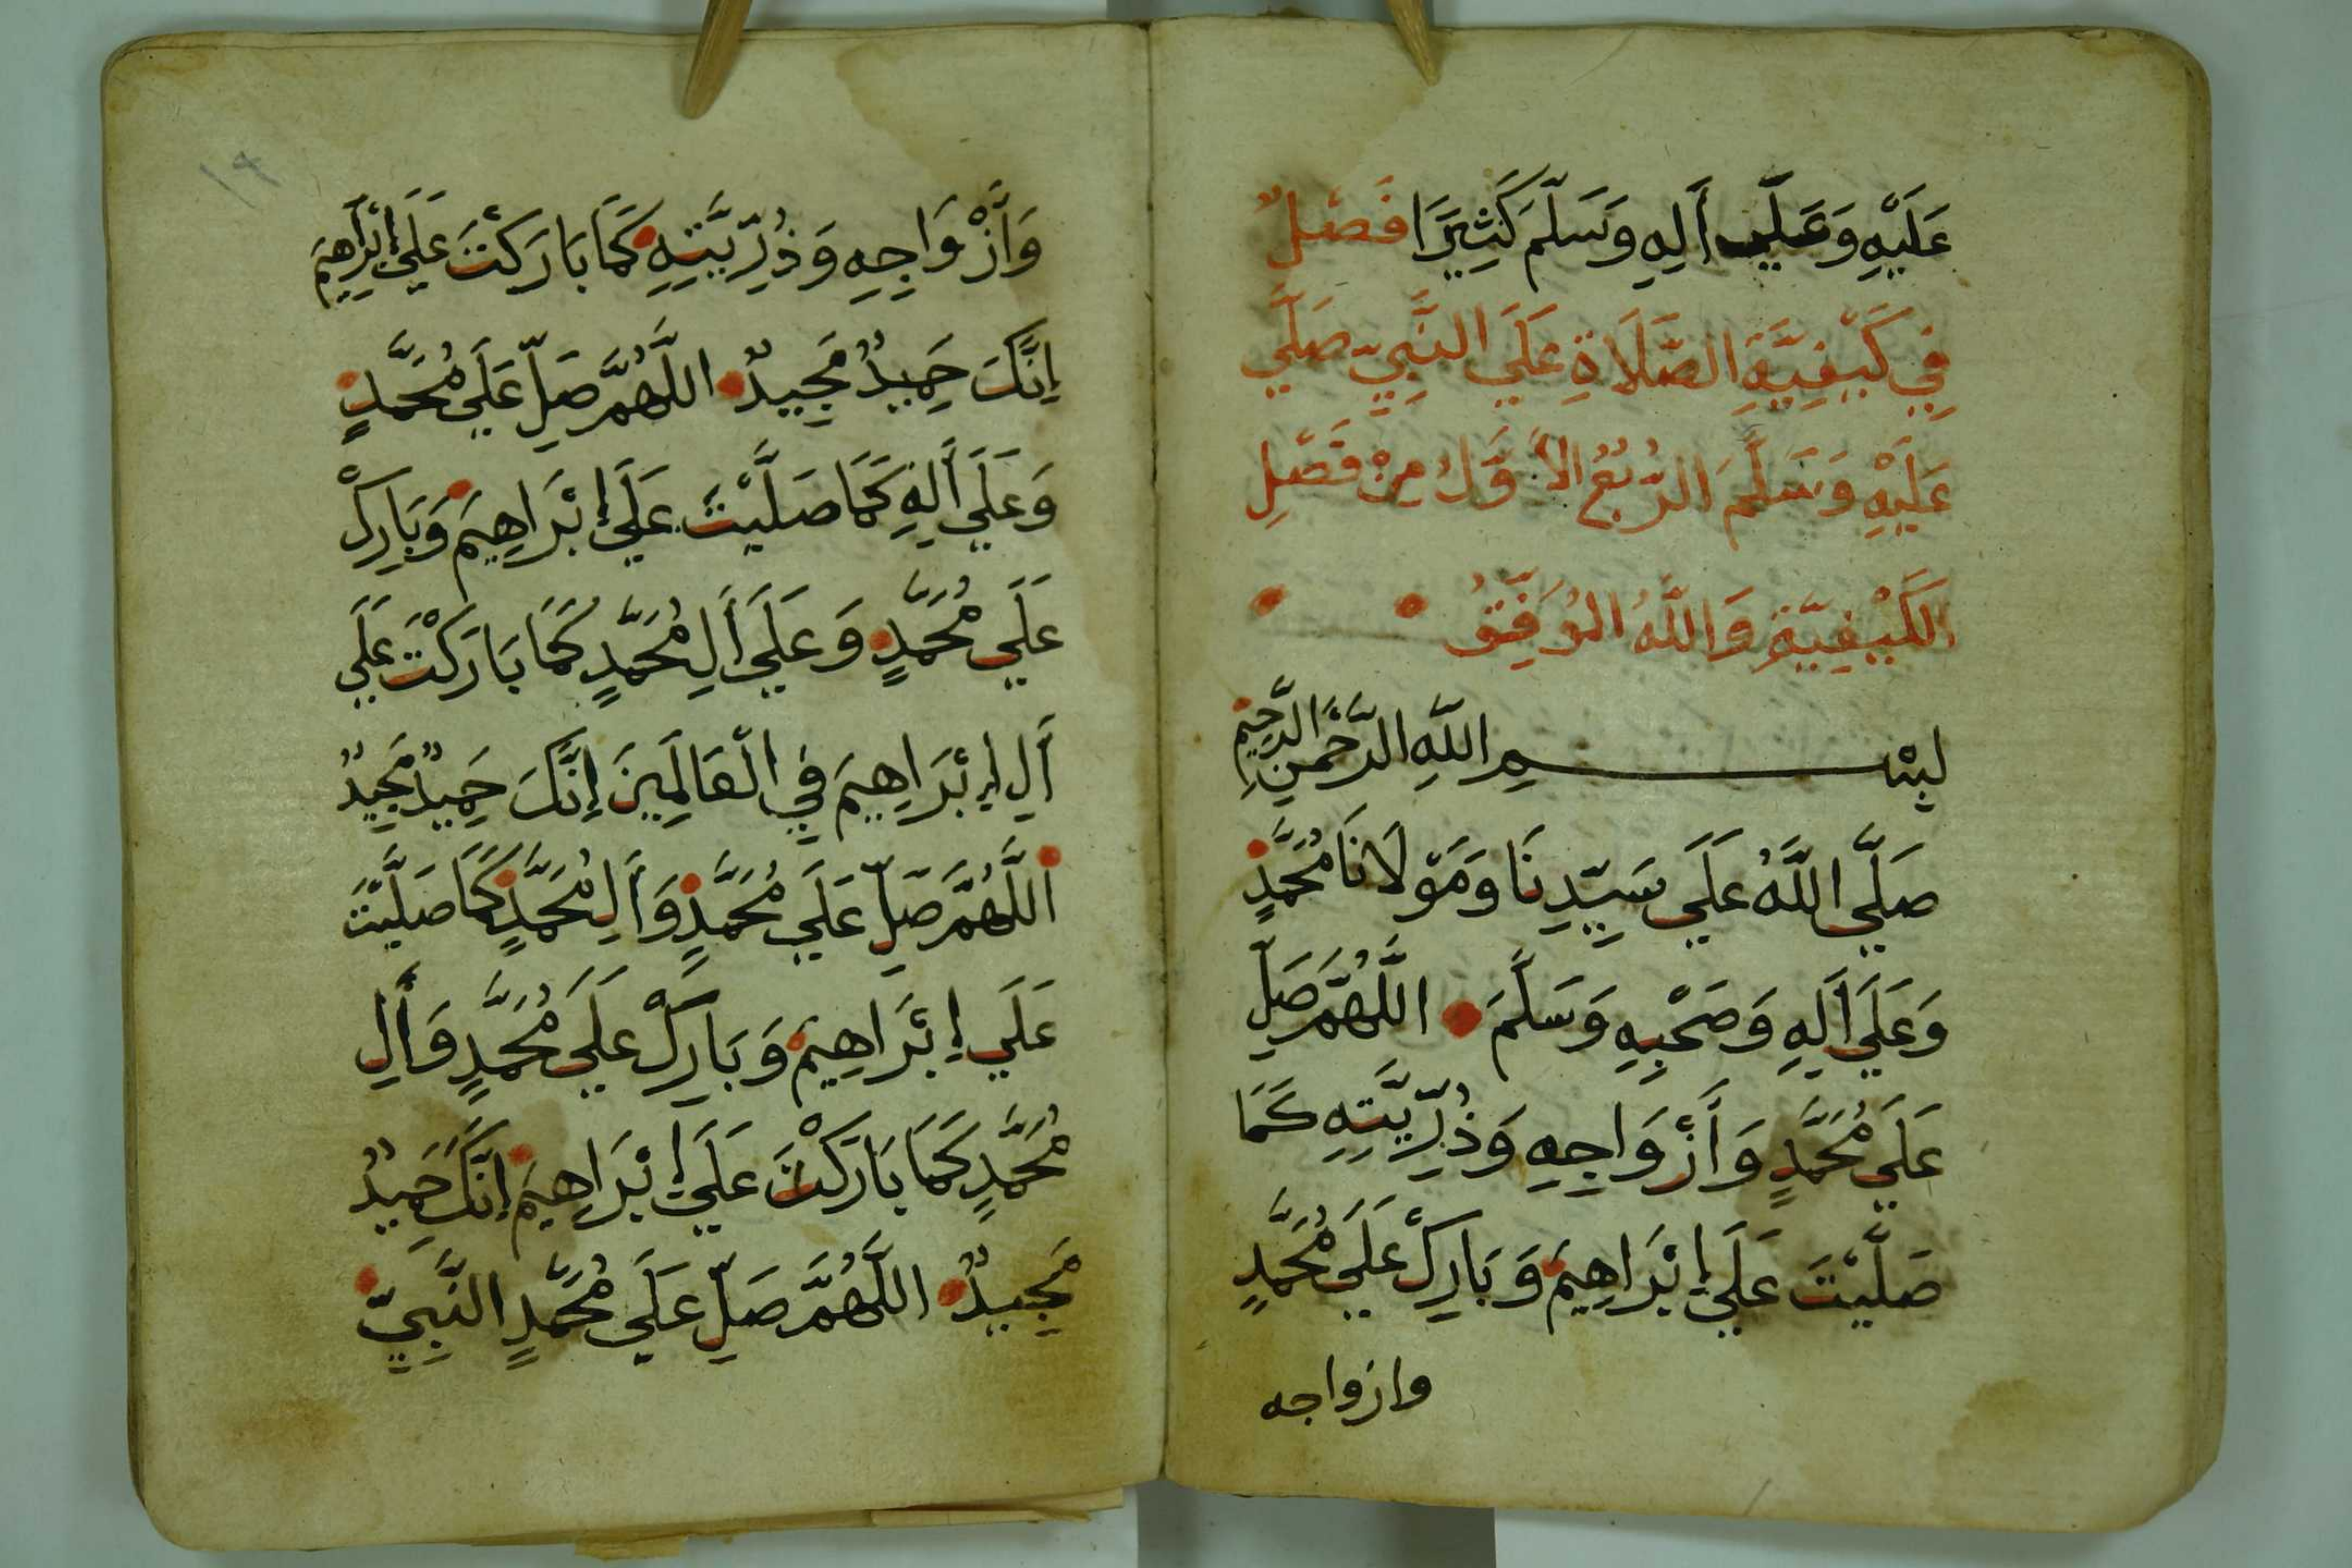 عَلَيْهِ وَعَلَي أَلِهِ وَسَلَّمَ كَثِيرًا فَصْلٌ
فِي كَيْفِيَّةِ الصَّلَاةِ عَلَي النَّبِيِّ صَلَّي
عَلَيْهِ وَسَلَّمَ الرُّبُعُ الأَوَّلُ مِنْ فَصْلِ
الكَيْفِيَّةِ وَاللَّهُ المُوَفِّقُ
بِسْمِ اللَّهِ الرَّحْمَنِ الرَّحِيمِ
صَلَّي اللَّهُ عَلَي سَيِّدِنَا وَمَوْلَانَا مُحَمَّدٍ
وَعَلَي أَلِهِ وَصَحْبِهِ وَسَلَّمَ اللَّهُمَّ صَلِّ
عَلَي مُحَمَّدٍ وَأَزْوَاجِهِ وَذُرِّيَّتِهِ كَمَا
صَلَّيْتَ عَلَي إِبْرَاهِيمَ وَبَارِكْ عَلَي مُحَمَّدٍ
وازواجه
١٩
وَأَزْوَاجِهِ وَذُرِّيَّتِهِ كَمَا بَارَكْتَ عَلَي إِبْرَاهِيمَ
إِنَّكَ حَمِيدٌ مَجِيدٌ اللَّهُمَّ صَلِّ عَلَي مُحَمَّدٍ
وَعَلَي أَلِهِ كَمَا صَلَّيْتَ عَلَي إِبْرَاهِيمَ وَبَارِكْ
عَلَي مُحَمَّدٍ وَعَلَي أَلِ مُحَمَّدٍ كَمَا بَارَكْتَ عَلَي
أَلِ إِبْرَاهِيمَ فِي الْعَالَمِينَ إِنَّكَ حَمِيدٌ مَجِيدٌ
اللَّهُمَّ صَلِّ عَلَي مُحَمَّدٍ وَأَلِ مُحَمَّدٍ كَمَا صَلَّيْتَ
عَلَي إِبْرَاهِيمَ وَبَارِكْ عَلَي مُحَمَّدٍ وَأَلِ
مُحَمَّدٍ كَمَا بَارَكْتَ عَلَي إِبْرَاهِيمَ إِنَّكَ حَمِيدٌ
مَجِيدٌ اللَّهُمَّ صَلِّ عَلَي مُحَمَّدٍ النَّبِيِّ